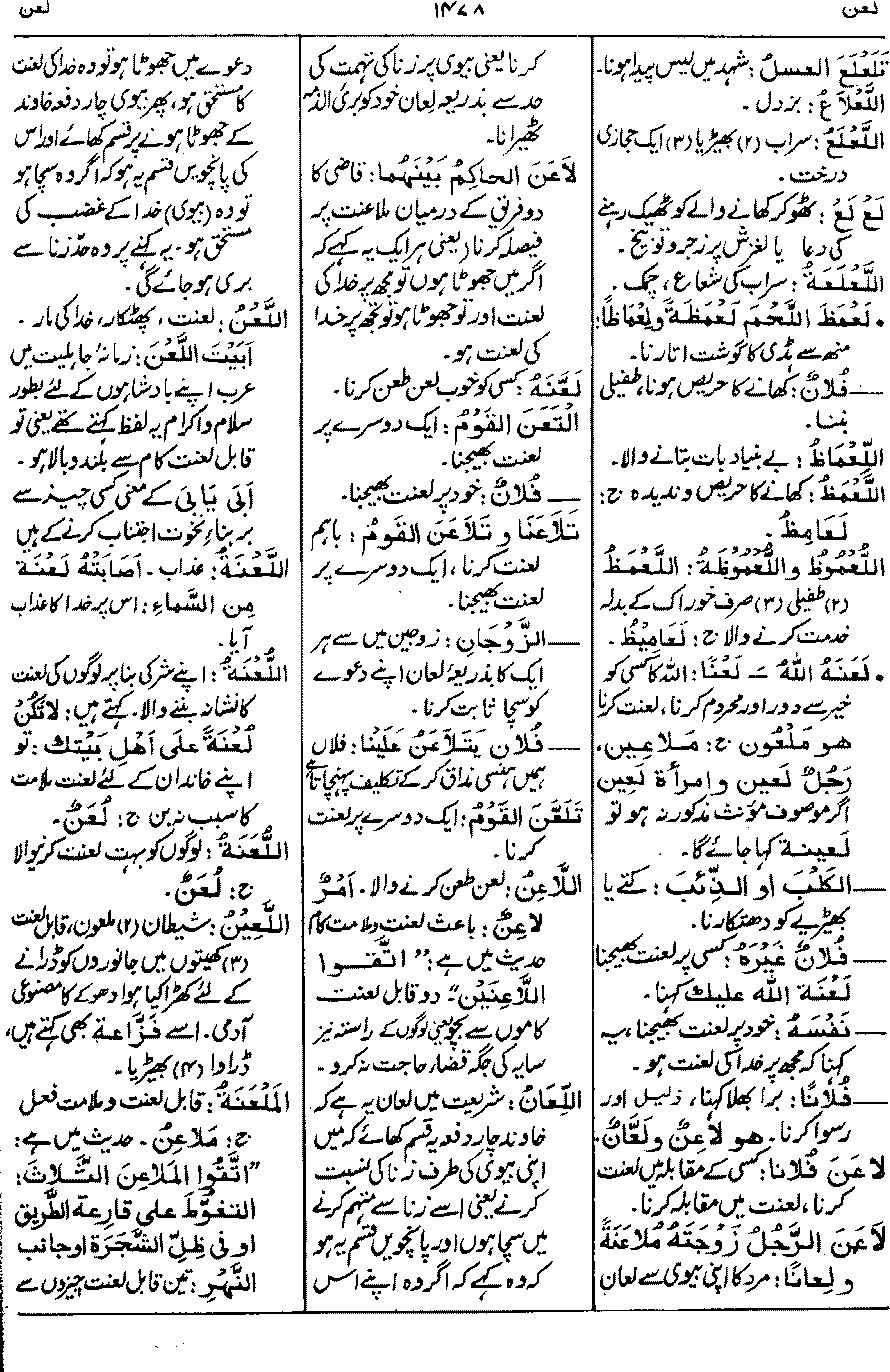 لعن
۱۴۷۸
لعن
تَلَعْلَعَ العسلُ: شہد میں لیس پیدا ہونا۔
اللَّعْلَاعُ: بزدل۔
اللَّعْلَعُ: سراب (۲) بھیڑیا (۳) ایک حجازی
درخت۔
لَعْ لَعْ: ٹھوکر کھانے والے کو ٹھیک رہنے
کی دعا یا لغزش پر زجر و توبیخ۔
اللَّعْلَعَةُ: سراب کی شعاع، چمک۔
• لَعْمَظَ اللَّحْمَ لَعْمَظَةً ولِعْمَاظًا:
منھ سے ہڈی کا گوشت اتارنا۔
— فُلَانٌ: کھانے کا حریص ہونا، طفیلی
بننا۔
اللِّعْمَاظُ: بے بنیاد بات بتانے والا۔
اللَّعْمَظُ: کھانے کا حریص و ندیدہ ج:
لَعَامِظُ۔
اللُّعْمُوْظُ واللُّعْمُوْظَةُ: اللَّعْمَظُ
(۲) طفیلی (۳) صرف خوراک کے بدلہ
خدمت کرنے والا ج: لَعَامِيْظُ۔
• لَعَنَهُ اللهُ ـَ لَعْنًا: اللہ کا کسی کو
خیر سے دور اور محروم کرنا، لعنت کرنا
هو مَلْعُون ج: مَلَاعِين،
رَجُلٌ لَعِين وامرأة لَعِين
اگر موصوف مؤنث مذکور نہ ہو تو
لَعِينة کہا جائے گا۔
— الكَلْبَ او الذِّئبَ: کتے یا
بھیڑیے کو دھتکارنا۔
— فُلَانٌ غَيْرَهُ: کسی پر لعنت بھیجنا
لَعْنَة الله عليك کہنا۔
— نَفْسَهُ: خود پر لعنت بھیجنا، یہ
کہنا کہ مجھ پر خدا کی لعنت ہو۔
— فُلَانًا: برا بھلا کہنا، ذلیل اور
رسوا کرنا۔ هو لَاعِنٌ ولَعَّانٌ۔
لاعَنَ فُلانا: کسی کے مقابلہ میں لعنت
کرنا، لعنت میں مقابلہ کرنا۔
لَاعَنَ الرَّجُلُ زَوْجَتَهُ مُلَاعَنَةً
ولِعانًا: مرد کا اپنی بیوی سے لعان
کرنا یعنی بیوی پر زنا کی تہمت کی
حد سے بذریعہ لعان خود کو بری الذمہ
ٹھیرانا۔
لَاعَنَ الحاكِمُ بَيْنَهُما: قاضی کا
دو فریق کے درمیان ملاعنت پر
فیصلہ کرنا (یعنی ہر ایک یہ کہے کہ
اگر میں جھوٹا ہوں تو مجھ پر خدا کی
لعنت اور تو جھوٹا ہو تو تجھ پر خدا
کی لعنت ہو۔
لَعَّنَهُ: کسی کو خوب لعن طعن کرنا۔
الْتَعَنَ القَوْمُ: ایک دوسرے پر
لعنت بھیجنا۔
— فُلَانٌ: خود پر لعنت بھیجنا۔
تَلَاعَنَا و تَلَاعَنَ القَومُ: باہم
لعنت کرنا، ایک دوسرے پر
لعنت بھیجنا۔
— الزَّوْجَانِ: زوجین میں سے ہر
ایک کا بذریعۂ لعان اپنے دعوے
کو سچا ثابت کرنا۔
— فُلَان يَتَلَاعَنُ عَلَيْنَا: فلاں
ہمیں ہنسی مذاق کر کے تکلیف پہنچاتا ہے
تَلَعَّنَ القَوْمُ: ایک دوسرے پر لعنت
کرنا۔
اللَّاعِنُ: لعن طعن کرنے والا۔ اَمْرٌ
لَاعِنٌ: باعث لعنت و ملامت کام
حدیث میں ہے: "اتَّقُوا
اللَّاعِنَيْنِ" دو قابل لعنت
کاموں سے بچو یعنی لوگوں کے راستہ نیز
سایہ کی جگہ قضاء حاجت نہ کرو۔
اللِّعَانُ: شریعت میں لعان یہ ہے کہ
خاوند چار دفعہ یہ قسم کھائے کہ میں
اپنی بیوی کی طرف زنا کی نسبت
کرنے یعنی اسے زنا سے متہم کرنے
میں سچا ہوں اور پانچویں قسم یہ ہو
کہ وہ کہے کہ اگر وہ اپنے اس
دعوے میں جھوٹا ہو تو وہ خدا کی لعنت
کا مستحق ہو، پھر بیوی چار دفعہ خاوند
کے جھوٹا ہونے پر قسم کھائے اور اس
کی پانچویں قسم یہ ہو کہ اگر وہ سچا ہو
تو وہ (بیوی) خدا کے غضب کی
مستحق ہو۔ یہ کہنے پر وہ حد زنا سے
بری ہو جائے گی۔
اللَّعْنُ: لعنت، پھٹکار، خدا کی مار۔
اَبَيْتَ اللَّعْنَ: زمانۂ جاہلیت میں
عرب اپنے بادشاہوں کے لئے بطور
سلام و اکرام یہ لفظ کہتے تھے یعنی تو
قابل لعنت کام سے بلند و بالا ہو۔
اَبَى يَابَى کے معنی کسی چیز سے
بر بناءِ نخوت اجتناب کرنے کے ہیں
اللَّعْنَةُ: عذاب۔ اَصَابَتْهُ لَعْنَة
مِن السَّماءِ: اس پر خدا کا عذاب
آیا۔
اللُّعْنَةُ: اپنے شر کی بنا پر لوگوں کی لعنت
کا نشانہ بننے والا۔ کہتے ہیں: لَاتَكُنْ
لُعْنَةً عَلى اَهْلِ بَيْتِك: تو
اپنے خاندان کے لئے لعنت ملامت
کا سبب نہ بن ج: لُعَنٌ۔
اللُّعَنَةُ: لوگوں کو بہت لعنت کرنیوالا
ج: لُعَنٌ۔
اللَّعِيْنُ: شیطان (۲) ملعون، قابل لعنت
(۳) کھیتوں میں جانوروں کو ڈرانے
کے لئے کھڑا کیا ہوا دھوکے کا مصنوعی
آدمی۔ اسے فَزَّاعة بھی کہتے ہیں،
ڈراوا (۴) بھیڑیا۔
المَلْعَنَةُ: قابل لعنت و ملامت فعل
ج: مَلَاعِنُ۔ حدیث میں ہے:
"اتَّقُوا المَلَاعِنَ الثَّلَاثَ:
التغوُّطَ على قارِعةِ الطَّرِيقِ
او فى ظِلِّ الشَّجَرَة اوجانب
النَّهْرِ: تین قابل لعنت چیزوں سے